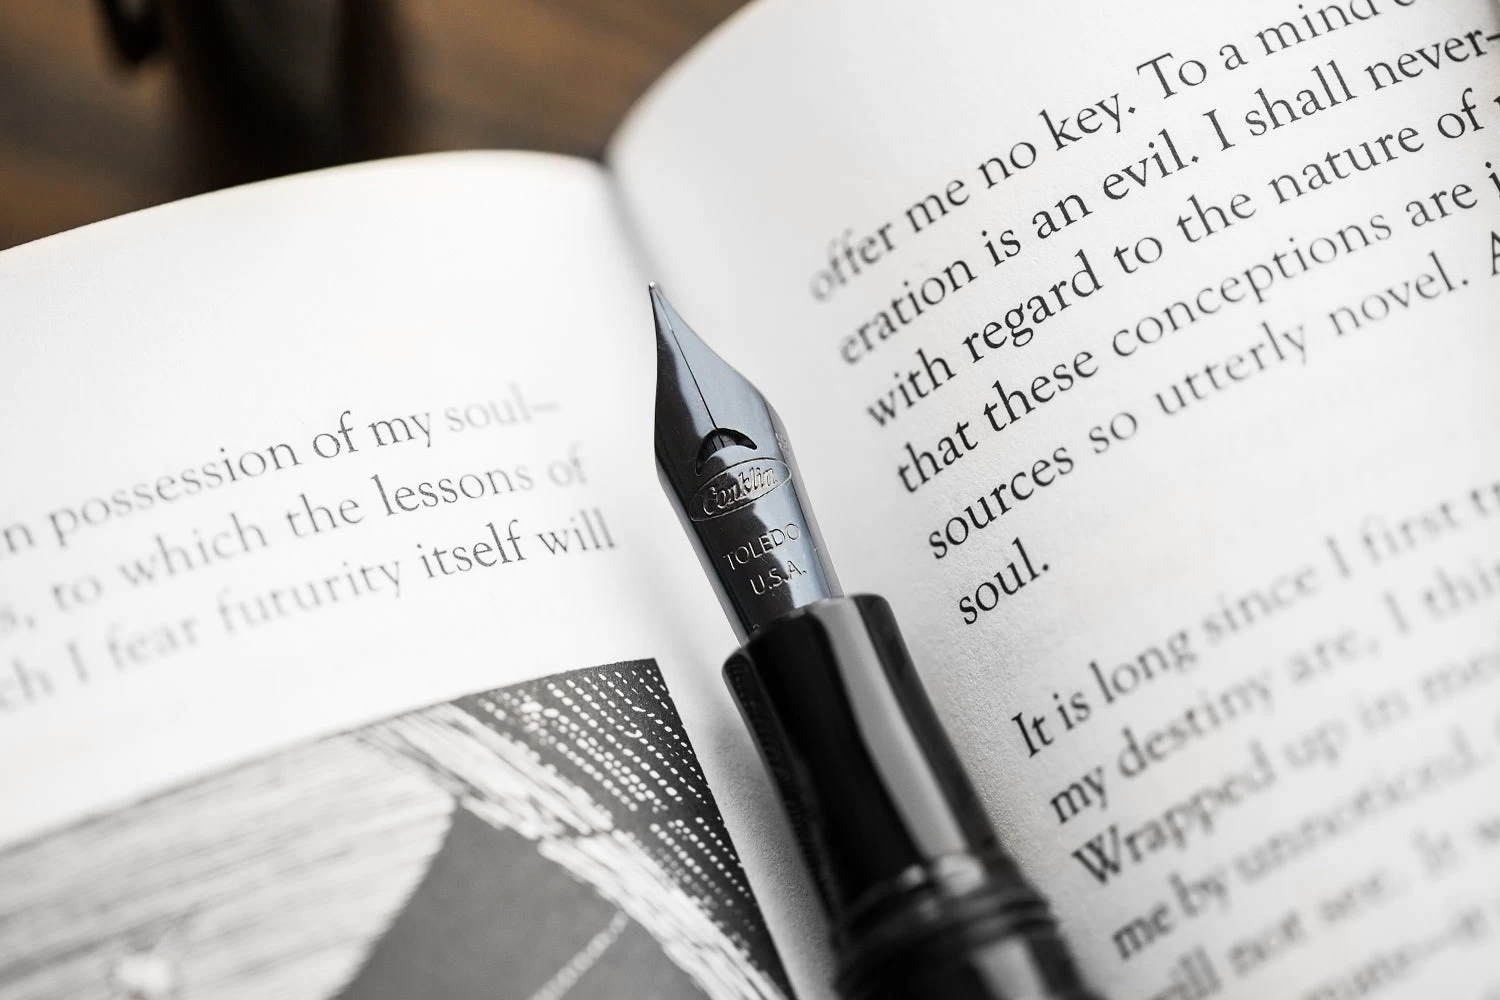 n possession of my soul—
s, to which the lessons of
ch I fear futurity itself will
offer me no key. To a mind
eration is an evil. I shall never—
with regard to the nature of
that these conceptions are
sources so utterly novel. A
soul.
It is long since I first tr
my destiny are, I thin
Wrapped up in me
me by unnoticed.
will not see. It w
Conklin
TOLEDO
U.S.A.